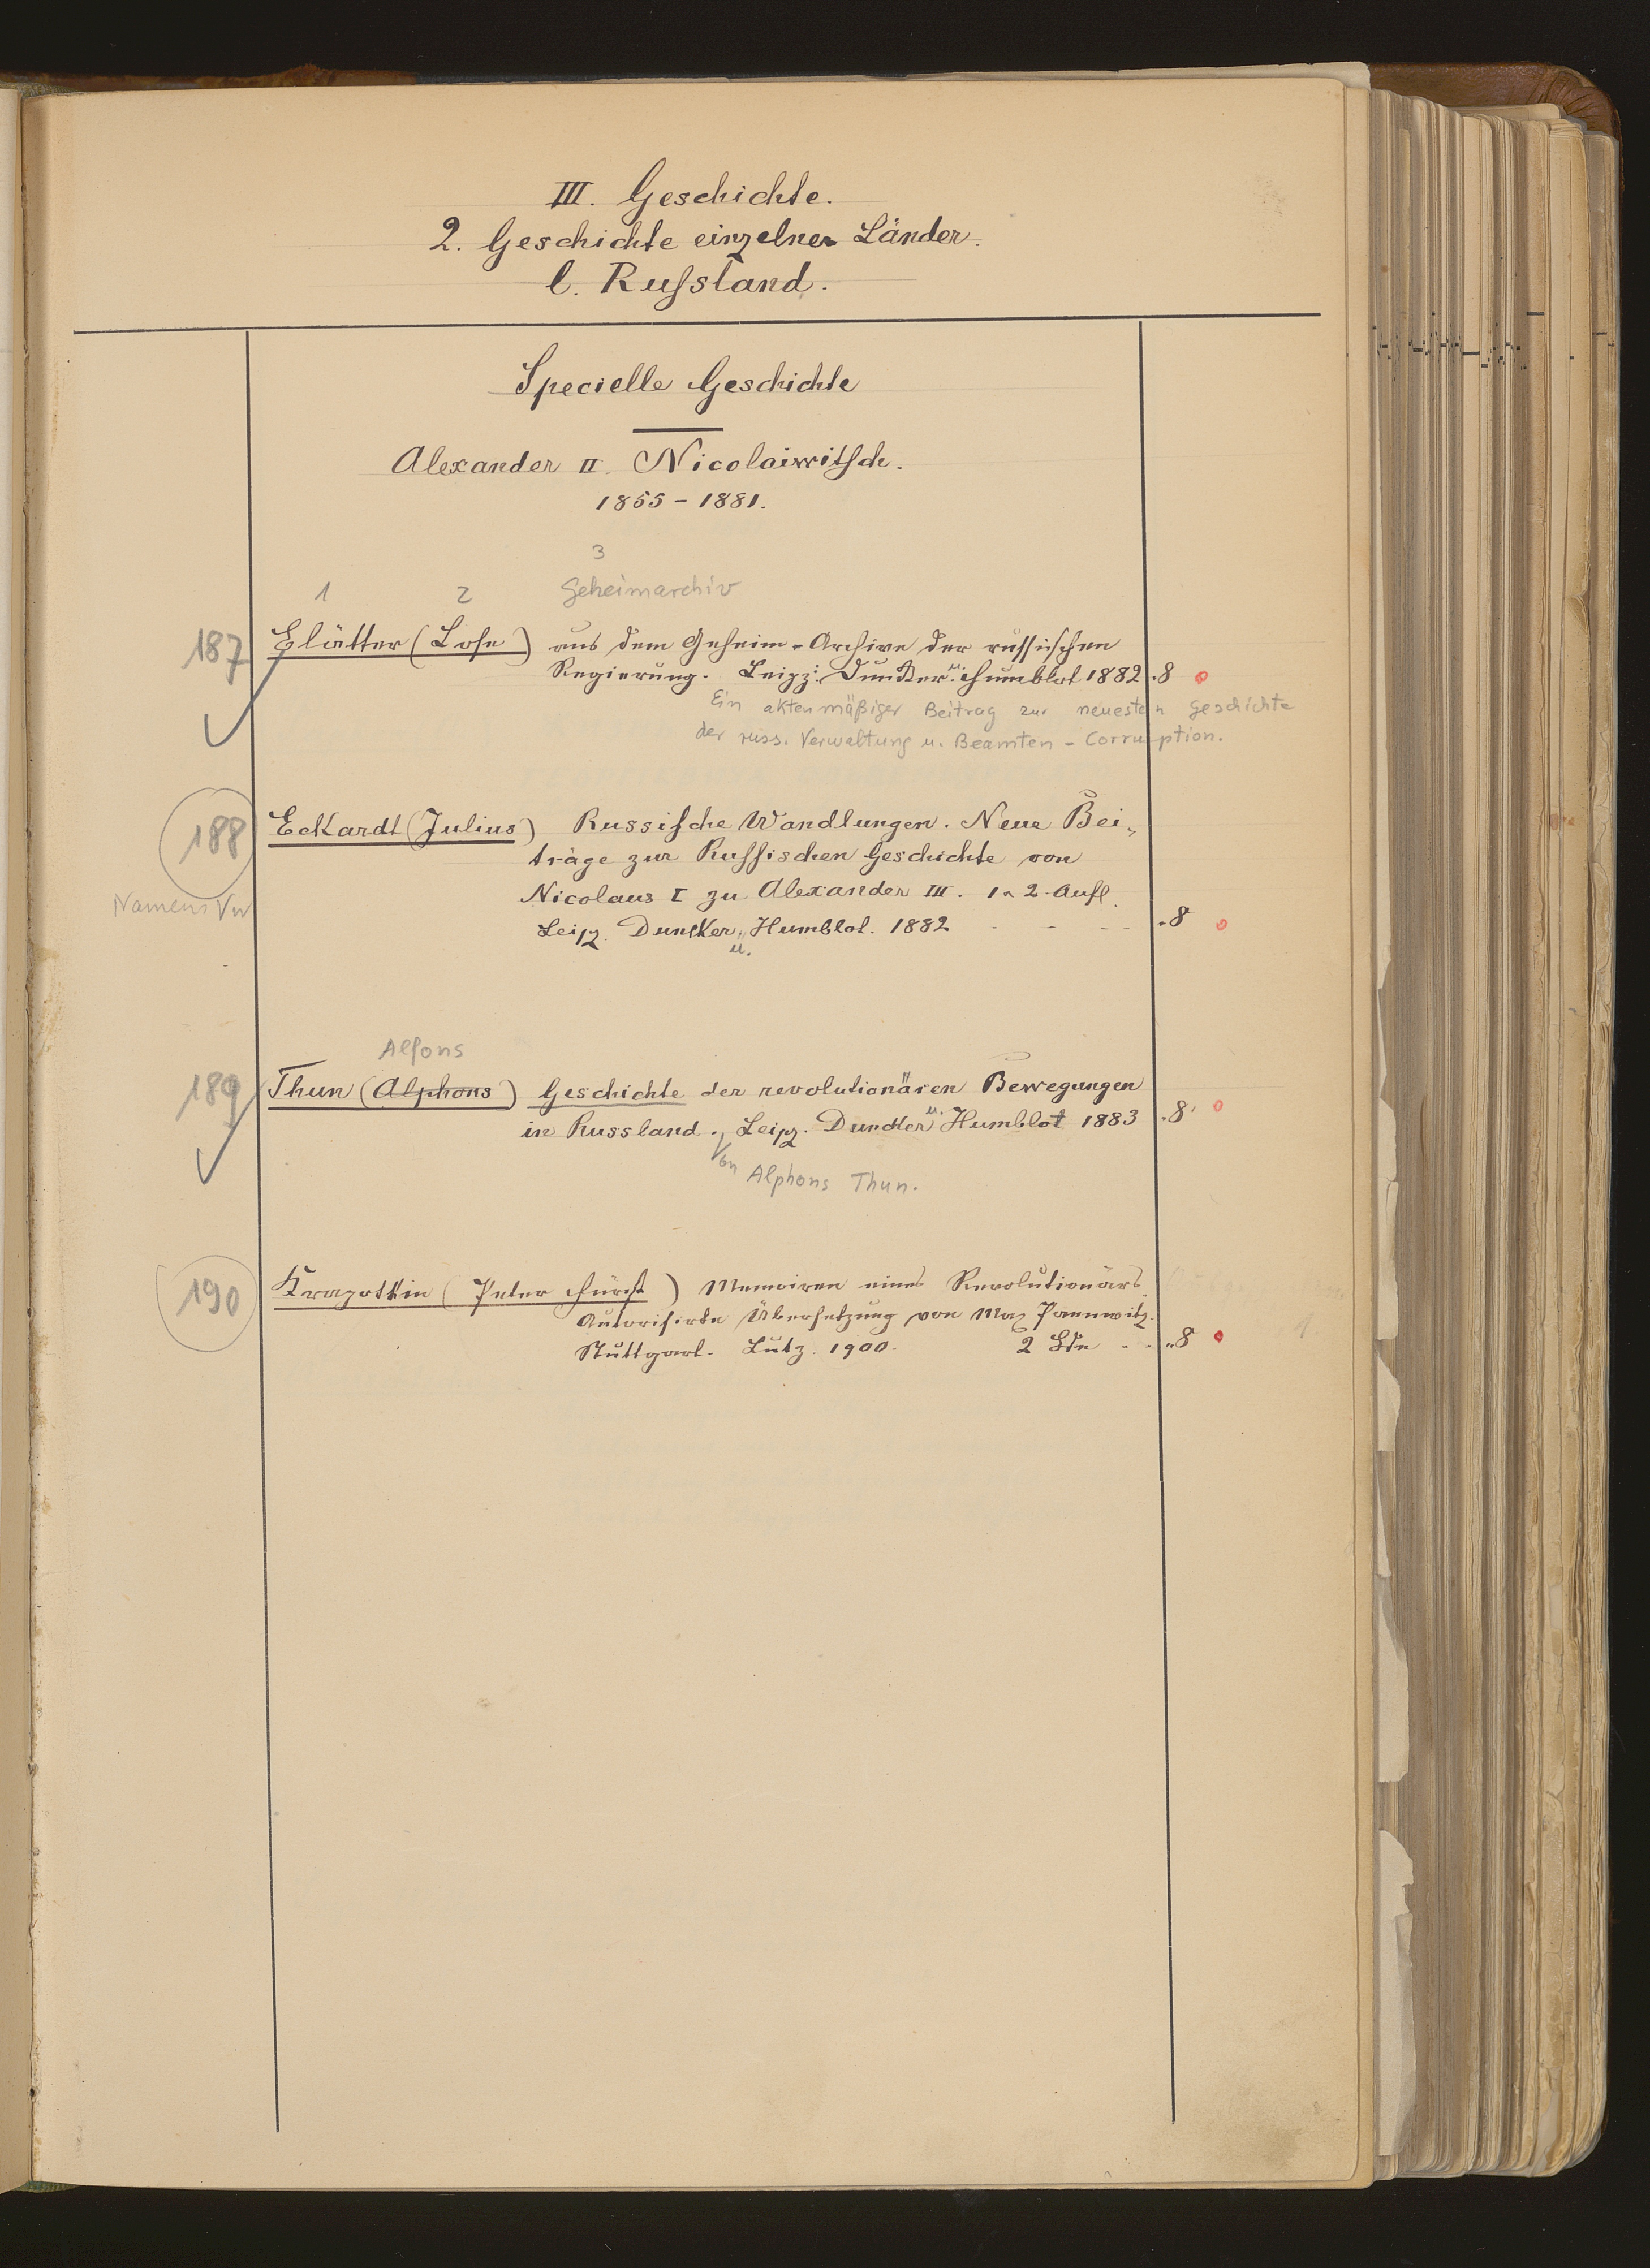 III. Geschichte.
2. Geschichte einzelner Länder.
l. Russland.
Specielle Geschichte
Alexander II. Nicolaiwitsch.
1855 - 1881.
3
1 2 Geheimarchiv
187 Blätter (Lose) aus dem Geheim-Archive der russischen
Regierung. Leipz: Duncker u. Humblot 1882 .8 o
Ein aktenmäßiger Beitrag zur neuesten Geschichte
der russ. Verwaltung u. Beamten-Corruption.
188 Eckardt (Julius) Russische Wandlungen. Neue Bei„
träge zur Russischen Geschichte von
Namens Vw Nicolaus I zu Alexander III. 1 2. Aufl.
Leipz. Duncker u. Humblot. 1882 - - - .8 o
Alfons
189 Thun (Alphons) Geschichte der revolutionären Bewegungen
in Russland. Leipz. Duncker u. Humblot 1883 .8 o
von Alphons Thun.
190 Krapotkin (Peter Fürst) Memoiren eines Revolutionärs.
Autorisirte Übersetzung von Max Pannwitz.
Stuttgart. Lutz. 1900. 2 Bde - - .8 o